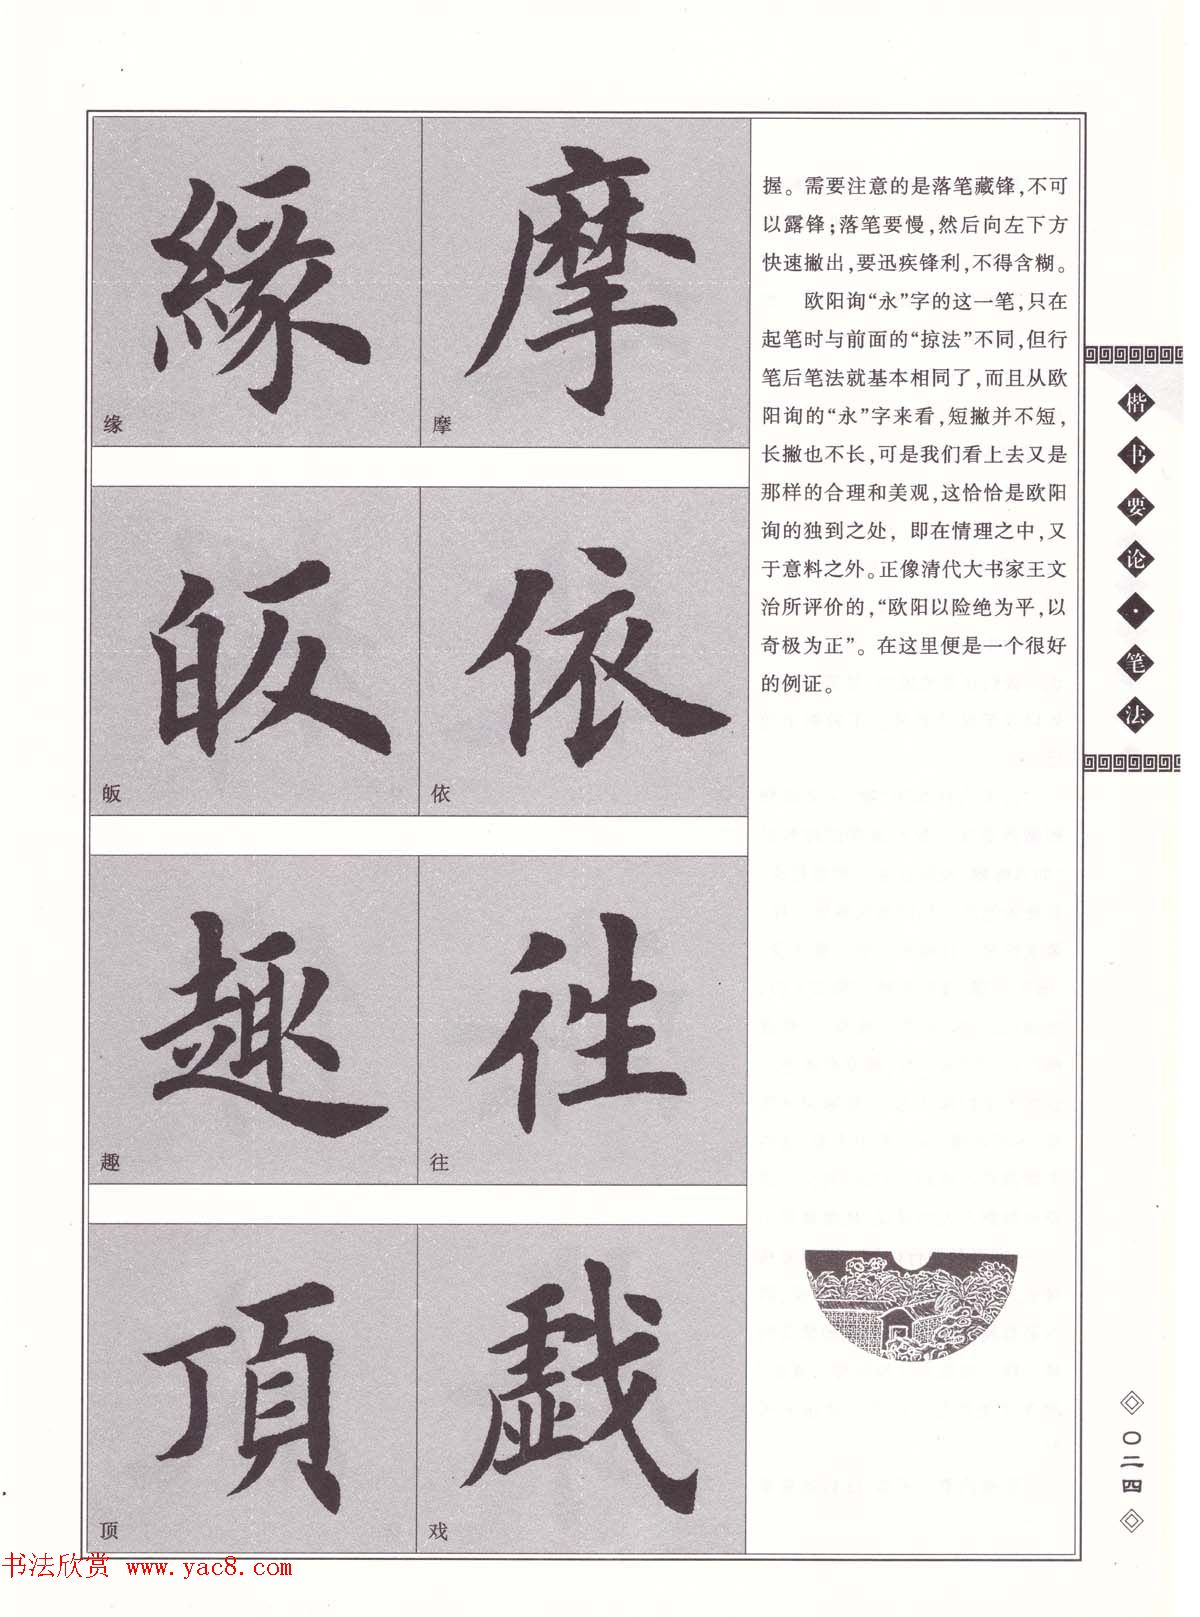 握。需要注意的是落笔藏锋，不可
以露锋；落笔要慢，然后向左下方
快速撇出，要迅疾锋利，不得含糊。
欧阳询“永”字的这一笔，只在
起笔时与前面的“掠法”不同，但行
笔后笔法就基本相同了，而且从欧
阳询的“永”字来看，短撇并不短，
长撇也不长，可是我们看上去又是
那样的合理和美观，这恰恰是欧阳
询的独到之处，即在情理之中，又
于意料之外。正像清代大书家王文
治所评价的，“欧阳以险绝为平，以
奇极为正”。在这里便是一个很好
的例证。
摩
摩
緣
缘
依
依
皈
皈
往
往
趣
趣
戲
戏
頂
顶
楷书要论·笔法
〇二四
书法欣赏 www.yac8.com